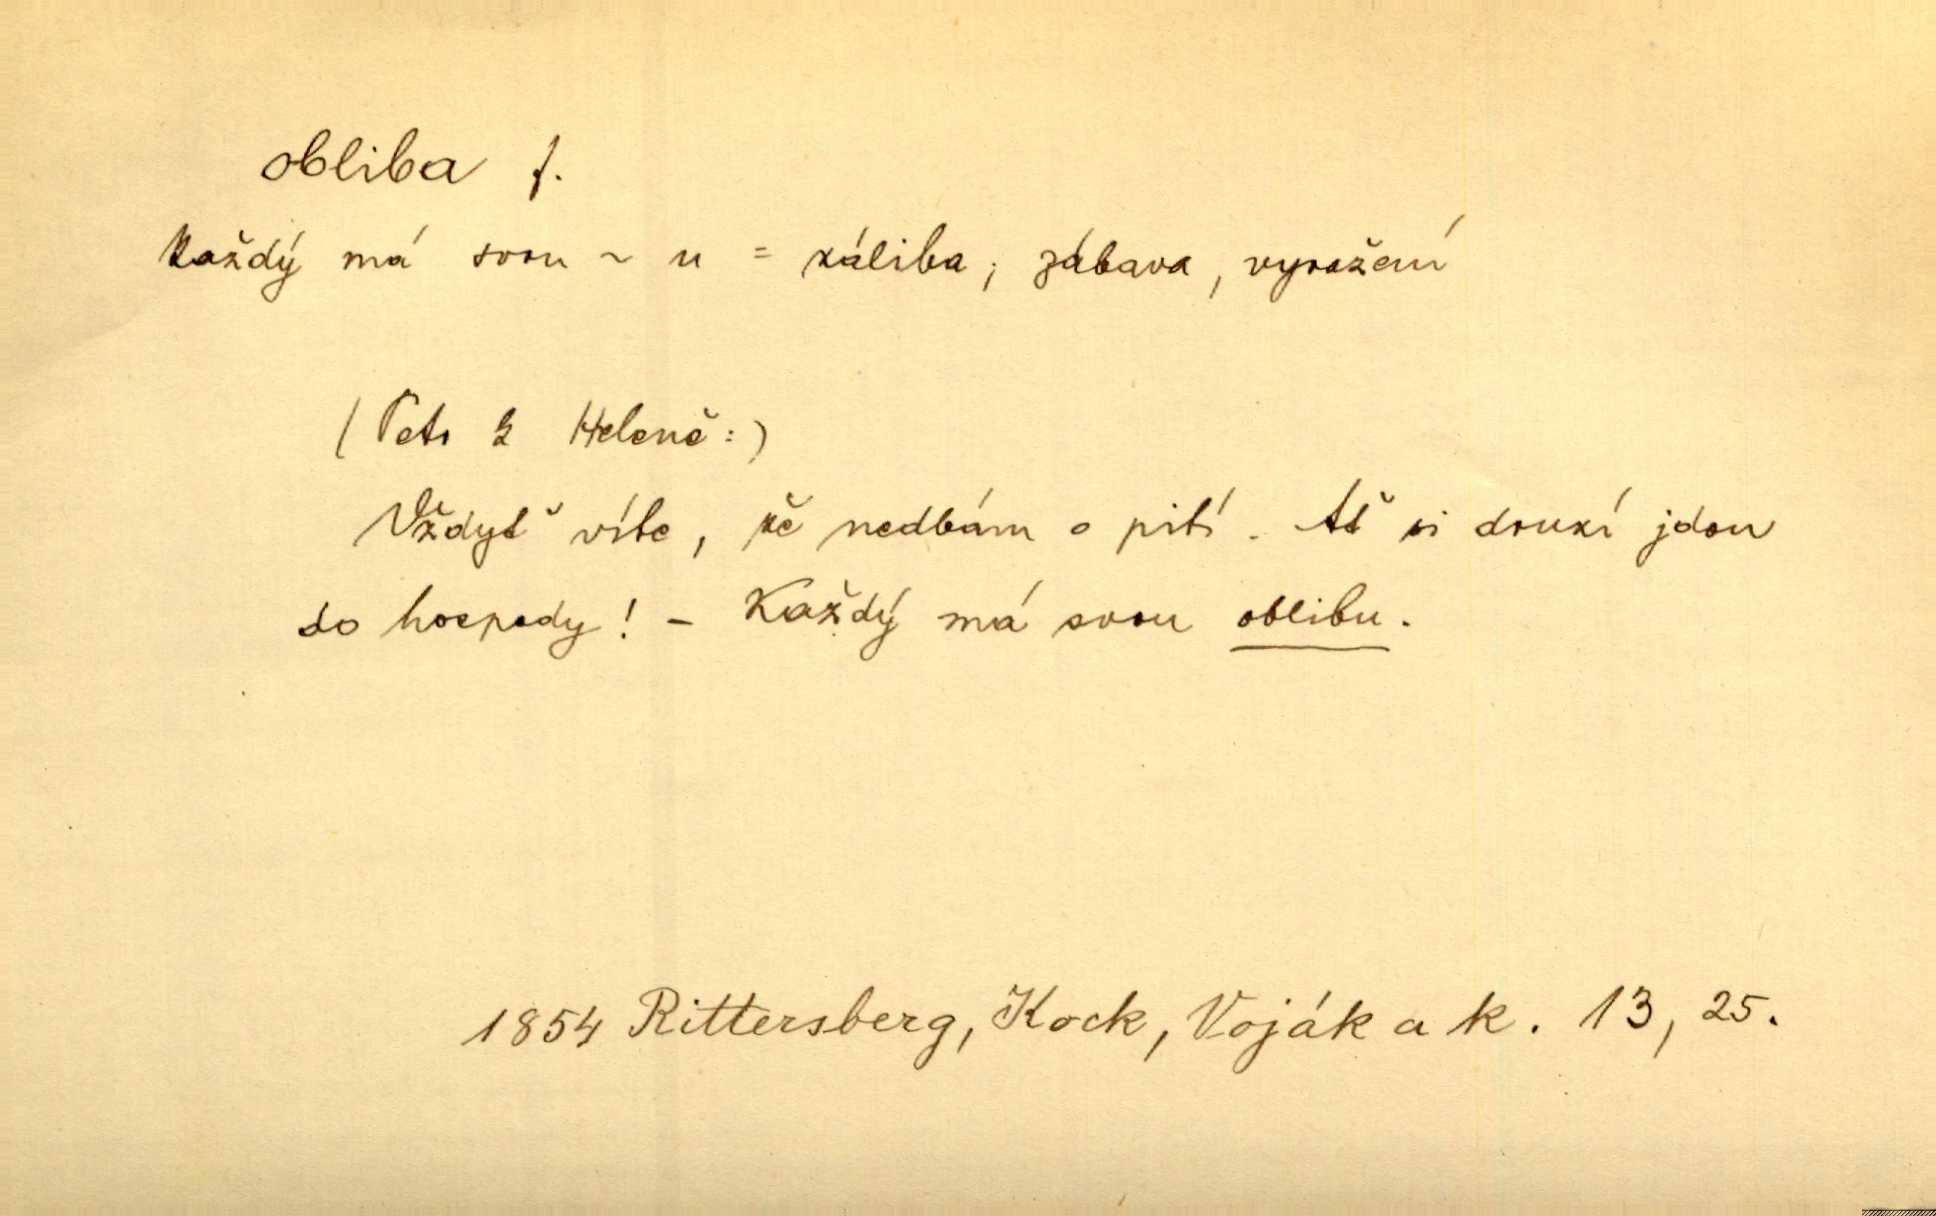 obliba f.
každý má svou ~ u = záliba; zábava, vyražení
(Petr k Heleně:)
Vždyť víte, že nedbám o pití. Ať si druzí jdou
do hospody! - Každý má svou oblibu.
1854 Rittersberg, Kock, Voják a k. 13, 25.